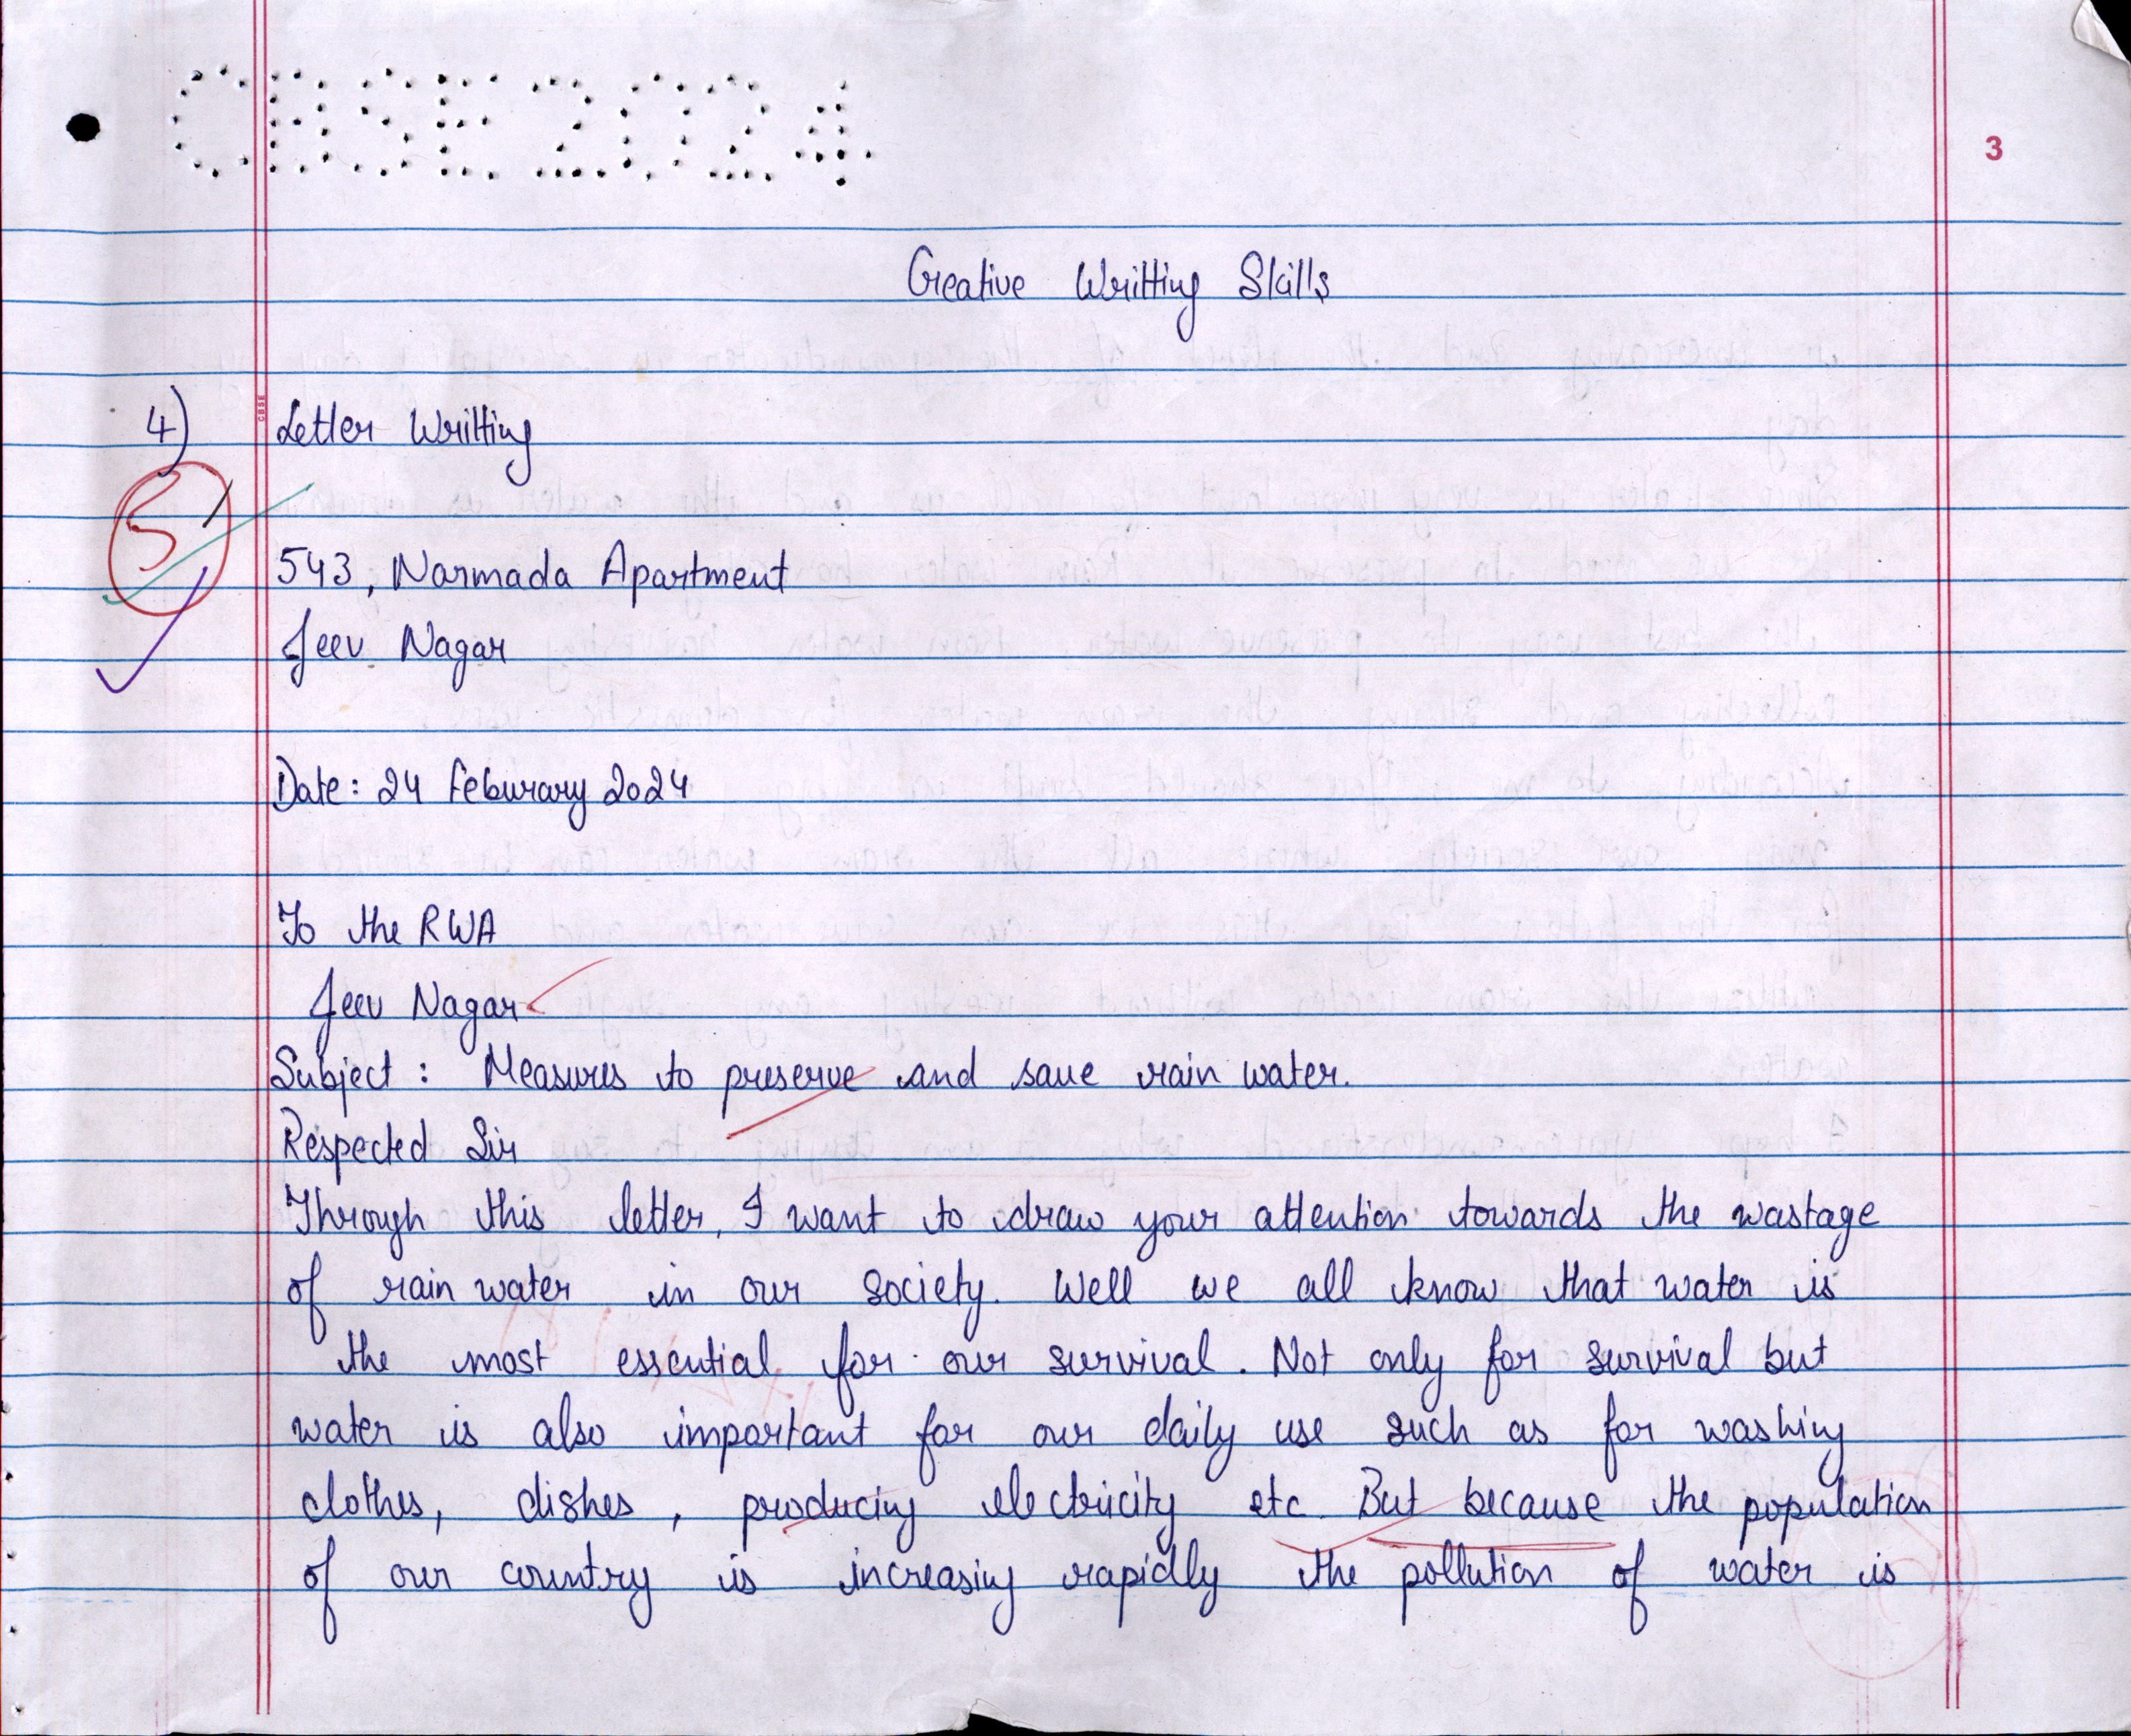 CBSE 2024
3
Creative Writting Skills
4) Letter Writting
5
543, Narmada Apartment
Jeev Nagar
Date: 24 Feburary 2024
To the RWA
Jeev Nagar
Subject : Measures to preserve and save rain water.
Respected Sir
Through this letter, I want to draw your attention towards the wastage
of rain water in our society. Well we all know that water is
the most essential for our survival. Not only for survival but
water is also important for our daily use such as for washing
clothes, dishes, producing electricity etc. But because the population
of our country is increasing rapidly the pollution of water is